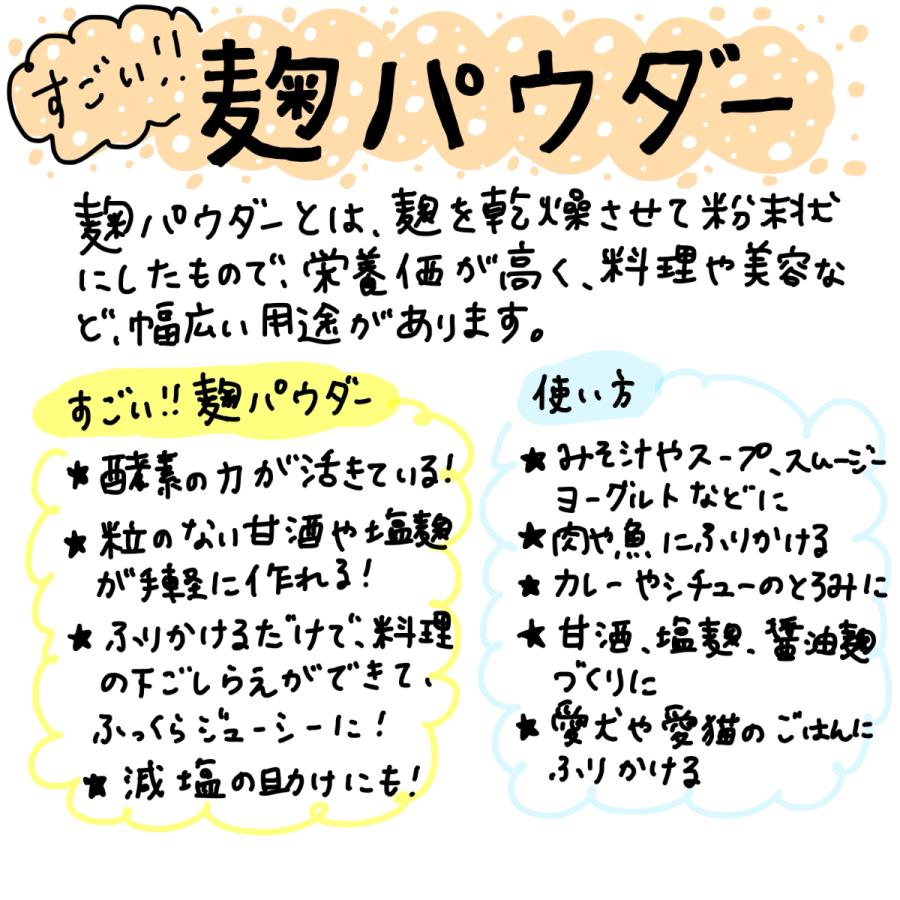 すごい!!
麹パウダー
麹パウダーとは、麹を乾燥させて粉末状
にしたもので、栄養価が高く、料理や美容な
ど、幅広い用途があります。
すごい!!麹パウダー
★酵素の力が活きている!
★粒のない甘酒や塩麹
が手軽に作れる!
★ふりかけるだけで、料理
の下ごしらえができて、
ふっくらジューシーに!
★減塩の助けにも!
使い方
★みそ汁やスープ、スムージー
ヨーグルトなどに
★肉や魚にふりかける
★カレーやシチューのとろみに
★甘酒、塩麹、醤油麹
づくりに
★愛犬や愛猫のごはんに
ふりかける